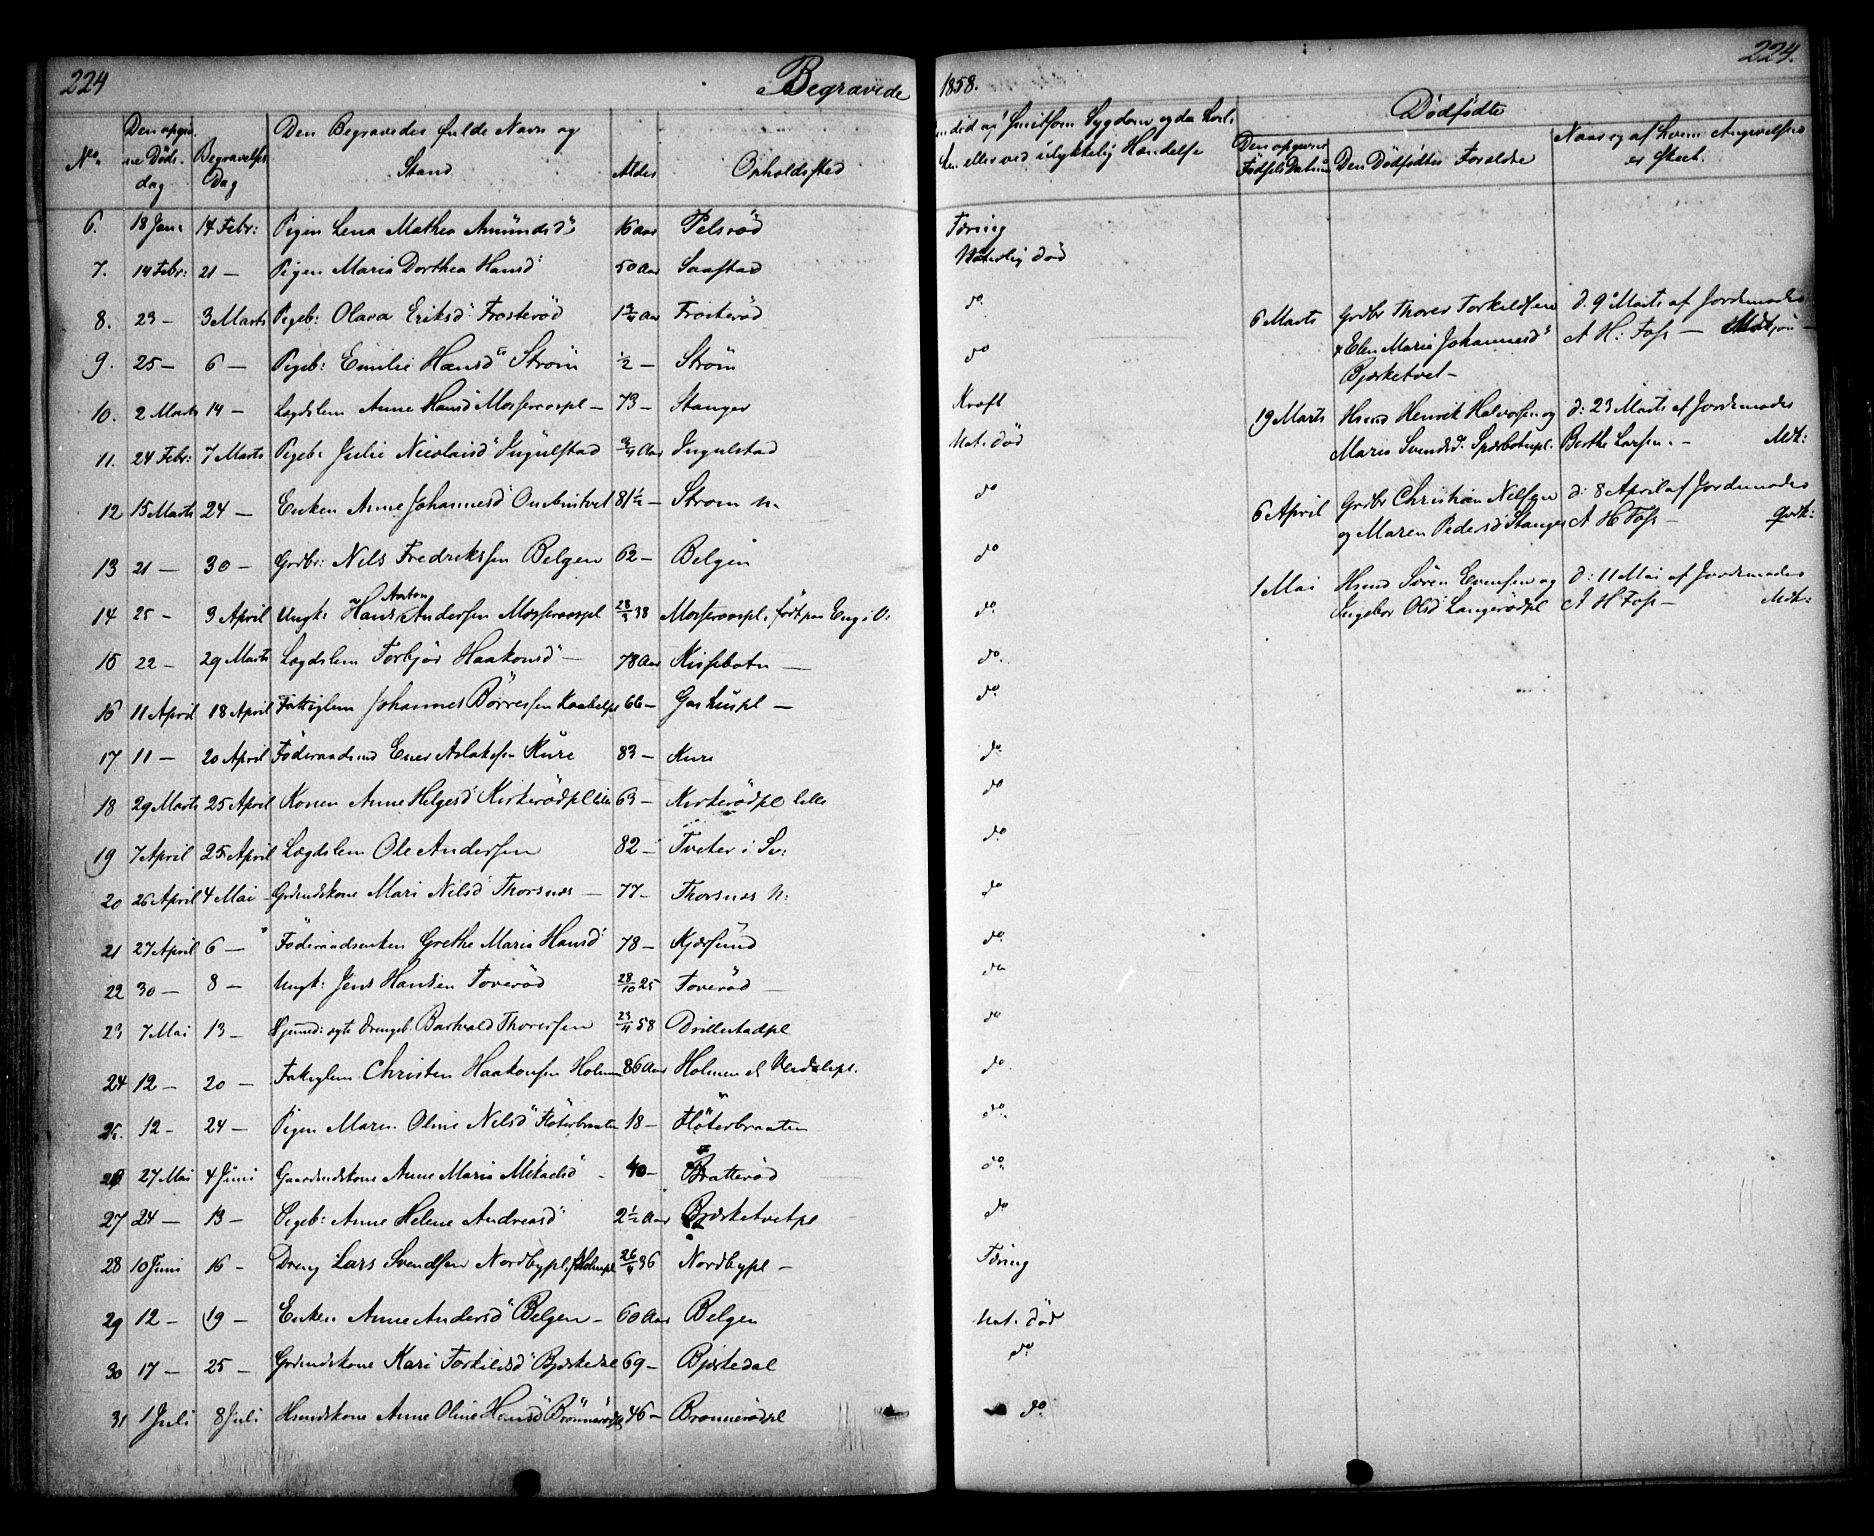 224
Begravede
1858.
224.
No.
Den opgivne Dödsdag
Begravelses Dag
Den Begravedes fulde Navn og Stand
Alder
Opholdssted
eller ved ulykkelig Hændelse
Dødfødte
Den opgivne Fødsels Datum
Den Dødfødtes Forældre
Naar og af hvem Angivelsen er skeet.
6. 18 Jan: 14 Febr: Pigen Lena Mathea Amundsd: 16 aar Pelsröd Tæring
7. 14 Febr: 21 — Pigen Maria Dorthea Hansd: 50 Aar Saastad Naturlig död
8. 23 — 3 Marts Pigeb: Olava Eriksd: Frosteröd 1 3/4 Aar Frosteröd do
9. 25 — 6 — Pigeb: Emilie Hansd: Ström 1/2 — Ström do
10. 2 Marts 14 — Lægdslem Anne Hansd: Mosserospl — 73 — Stanger Kræft
11. 24 Febr: 7 Marts Pigeb: Julie Nicolaisd: Ingulstad 3/4 Aar Ingulstad Nat. död
12 15 Marts 24 — Enken Anne Johannesd: 81 1/2 — Strom N. do
13 21 — 30 — Grdbr: Nils Fredriksen Belgen 62 — Belgen do
14 25 — 3 April Ungk: Hans Anton Andersen Mosserospl 28/5 38 Mosserospl. födt paa Eng i V: do
15 22 — 29 Marts Lægdslem Torbjör Haakonsd: — 78 Aar Kissebotn — do.
16 11 April 18 April Fattiglem Johannes Börresen 66 — Gashuspl — do
17 11 — 20 April Föderaadsmd Ener Aslaksen Kure 83 — Kure do
18 29 Marts 25 April Konen Anne Helgesd: Kirkerödpl lille 63 — Kirkerödpl lille do
19 7 April 25 April Lægdslem Ole Andersen 82 — Tveter i Sv: do
20 26 April 4 Mai — Grdmdskone Mari Nilsd: Thorsnæs — 77 — Thorsnæs N: do
21 27 April 6 — Föderaadsenken Grethe Maria Hansd: 78 — Kjærsund do
22 30 — 8 — Ungk: Jens Hansen Toveröd 28/10 25 Toveröd — do
23 7 Mai 13 — Hjemmed: ægte Drengeb. Bartvald Thoresen 23/4 58 Drillestadpl do
24 12 — 20 — Fattiglem Christen Haakonsen Holmen 86 Aar Holmen do
25. 12 — 24 — Pigen Maren Oline Nilsd: Flöterbraaten 18 — Flöterbraaten do
26 27 Mai 4 Juni Gaardmdskone Anne Maria Mikaelsd: — 40 — Bratteröd do
27 24 — 13 — Pigeb: Anne Helene Andreasd: 2 1/2 Aar Bjerketvetpl do
28 10 Juni 16 — Dreng Lars Svendsen Nordbypl. 26/4 36 Nordbypl — Tæring
29 12 — 19 — Enken Anne Andersd: Belgen — 60 Aar Belgen Nat. död
30 17 — 25 — Grdmdskone Kari Torkildsd: Bjerkedal 69 — Bjerkedal do
31 1 Juli 8 Juli Hsmdskone Anne Oline Hansd: Brönnerödpl 46 — Brönnerödpl do
6 Marts Grdbr Thorer Torkildsen & Elen Maria Johannesd: Bjerketvet — d. 9 Marts af Jordemoder A H: Foss —
19 Marts Hsmd Henrik Halvorsen og Maria Svendsd: d: 23 Marts af Jordemoder Berthe Larsen. — Mdk:
6 April Grdbr Christian Nilsen og Maren Pedersd: Stanger d: 8 April af Jordemoder A H Foss — Qvdk:
1 Mai Hsmd Sören Evensen og Ingebor Olsd: Langerödpl d: 11 Mai af Jordemoder A H Foss — Mdk: